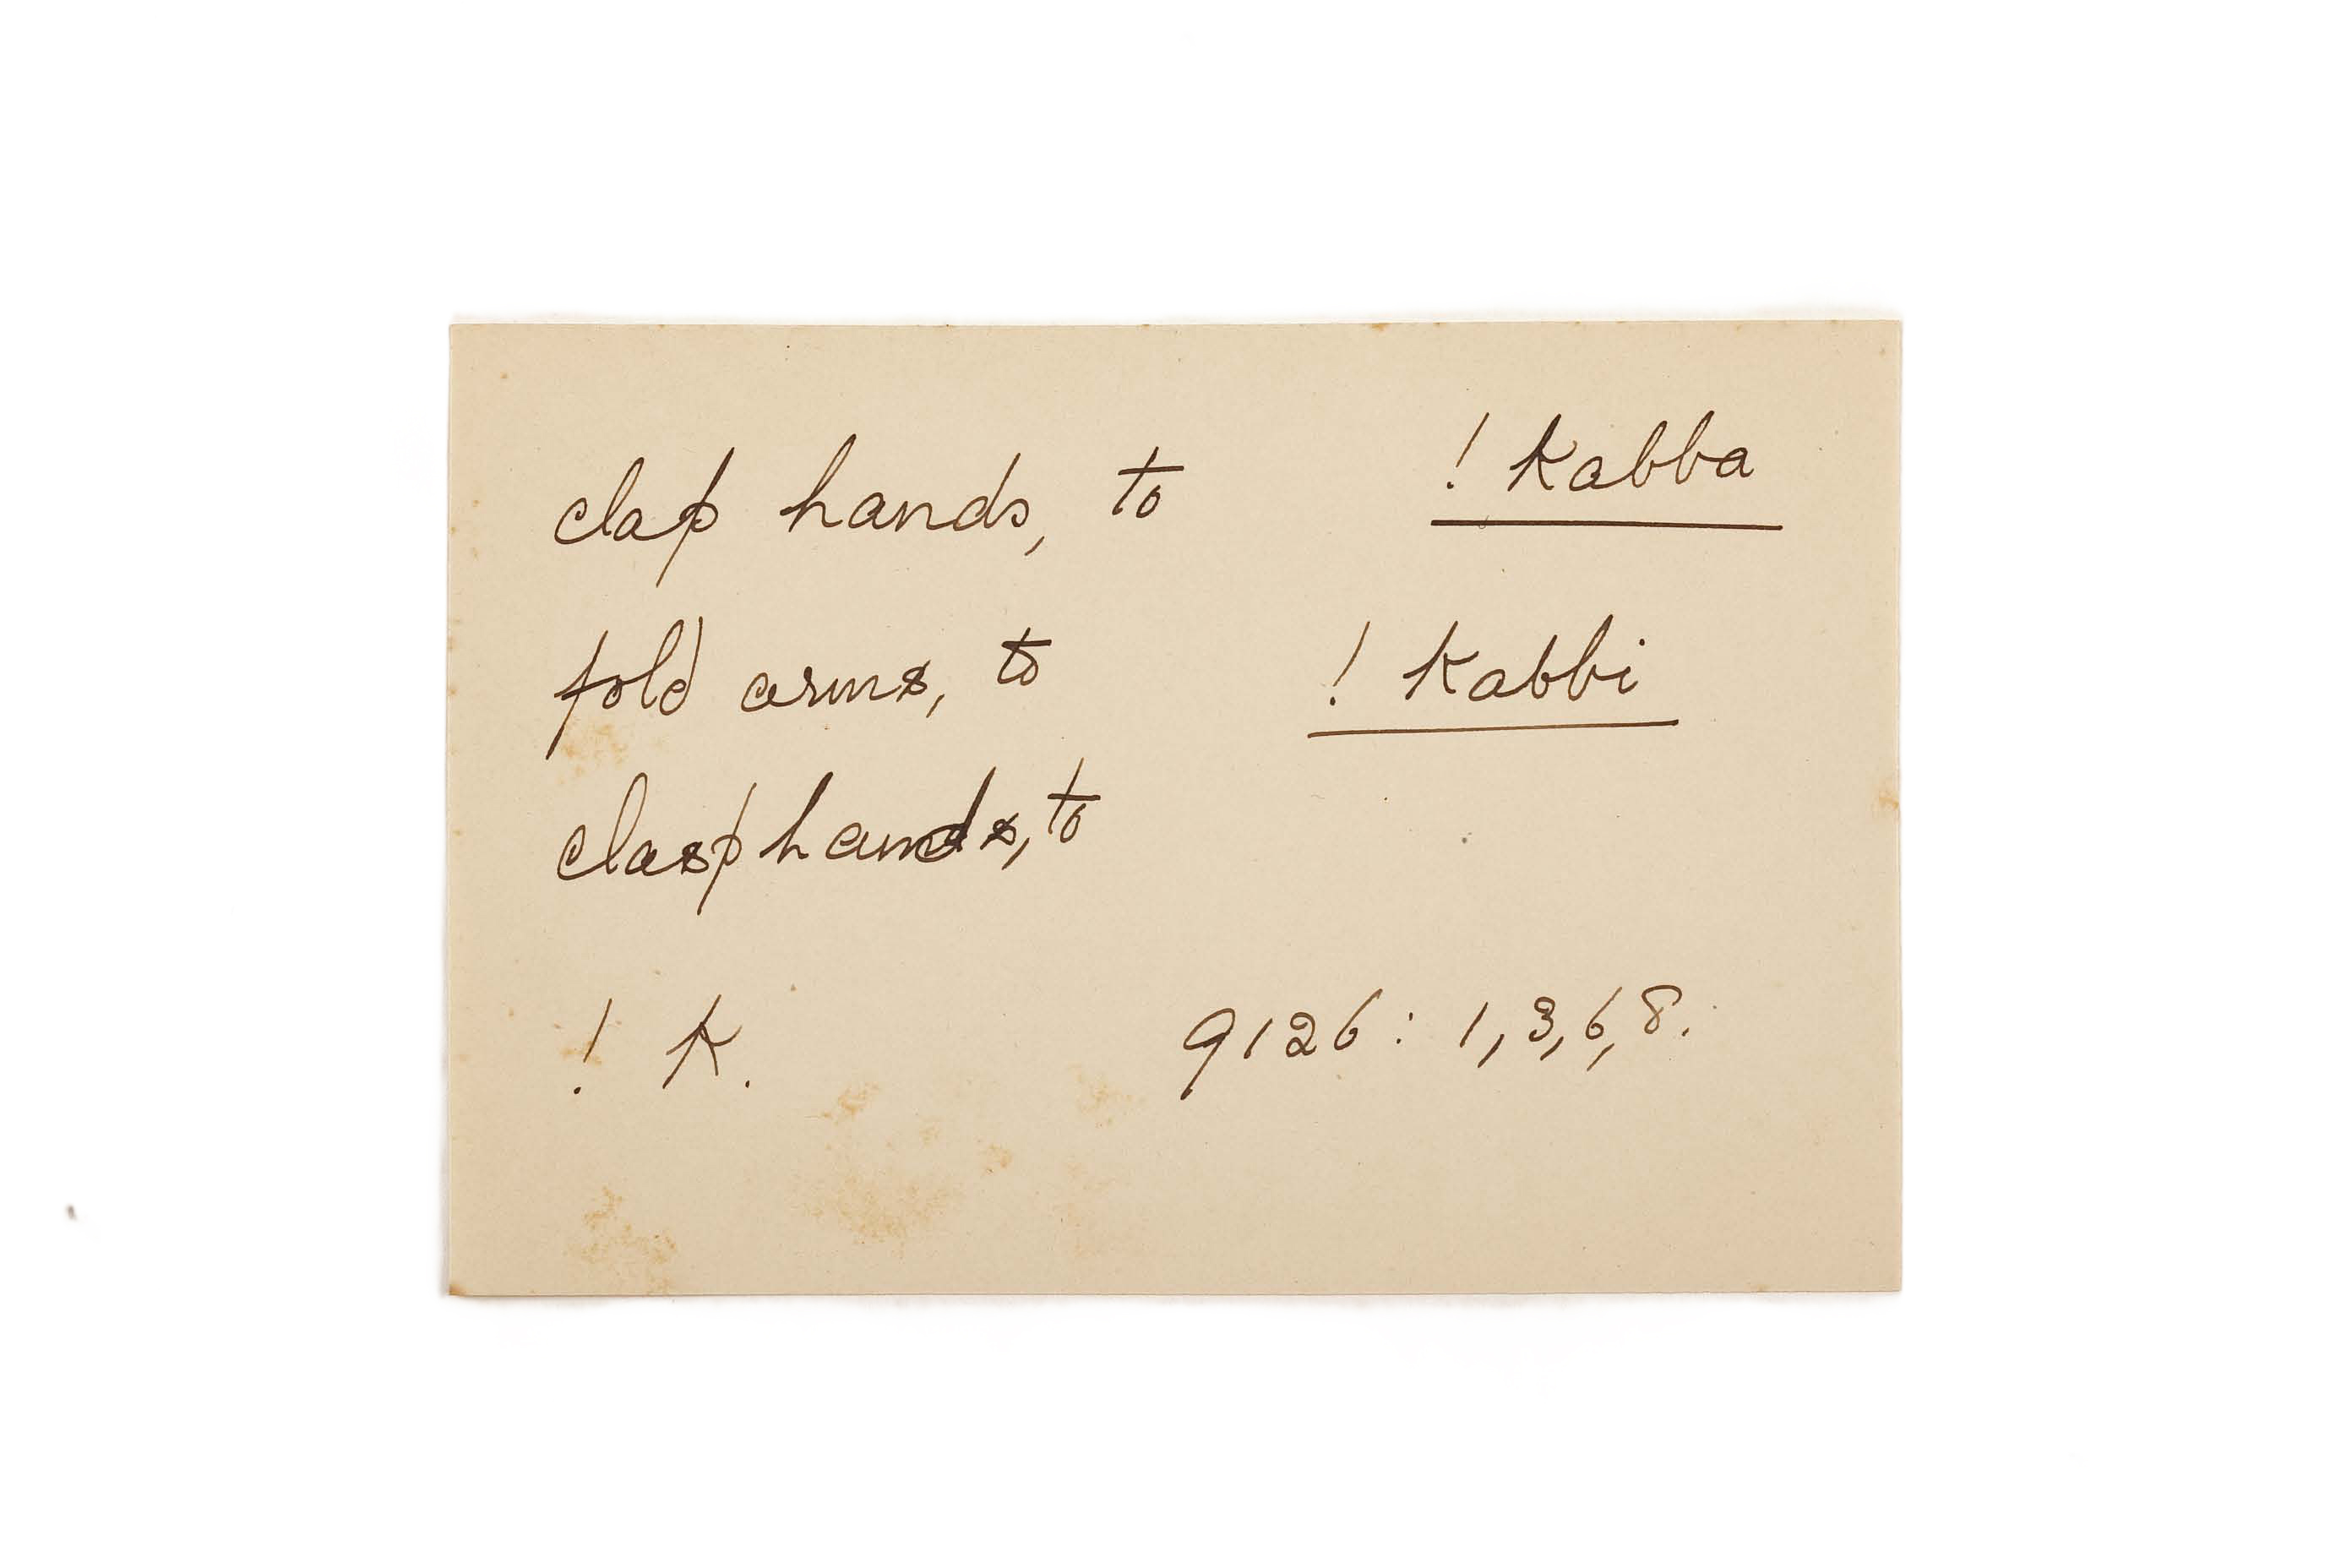 clap hands, to ! kabba
fold arms, to ! kabbi
clasp hands, to
! k. 9126 : 1, 3, 6, 8.